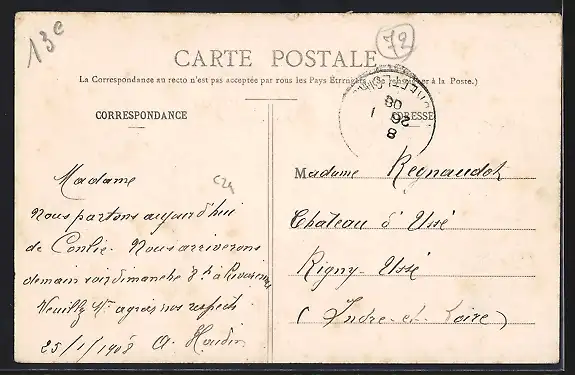 13e
72
CARTE POSTALE
La Correspondance au recto n'est pas acceptée par tous les Pays Étrangers (Se renseigner à la Poste.)
CORRESPONDANCE
ADRESSE
8
26 1
08
Madame
Nous partons aujourd'hui
de Conlie. Nous arriverons
demain soir dimanche 8h à
Veuillez Me agréer nos respects
25/1/1908 A. Houdin
Madame Regnaudot
Château d'Ussé
Rigny-Ussé
(Indre-et-Loire)